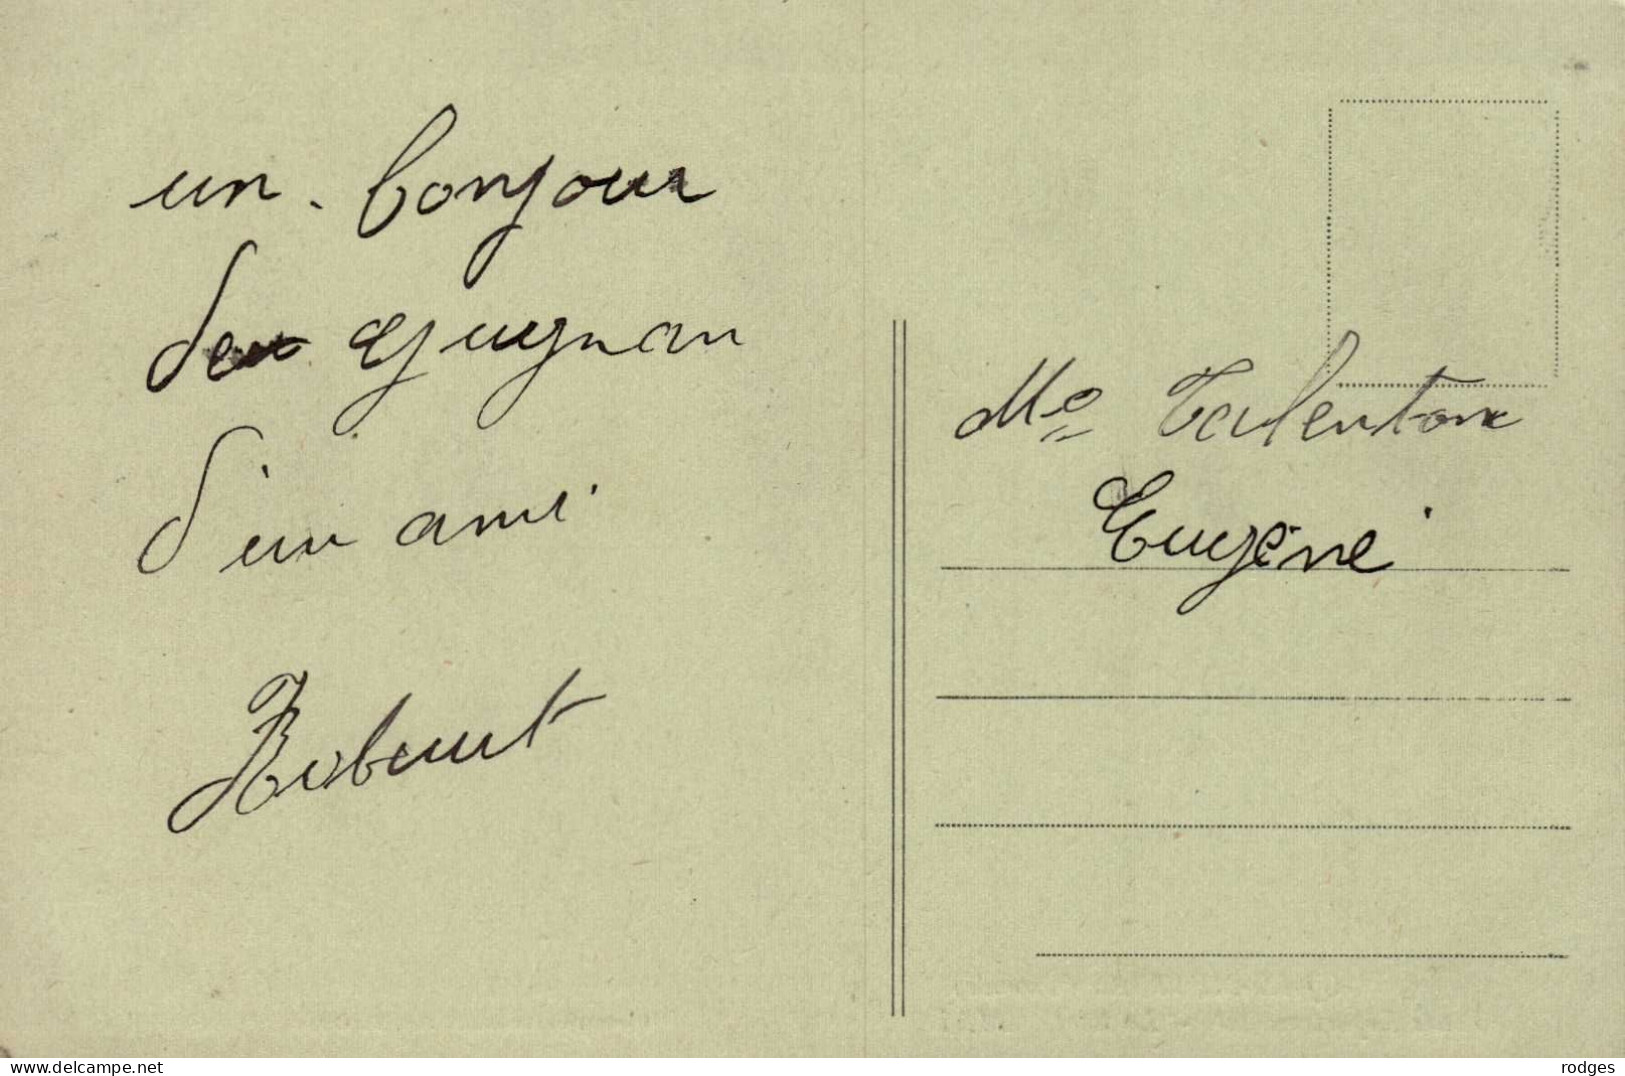 un. bonjour
de Gueugnan
d'un ami
Robert
Me Talenton
Eugène
delcampe.net
rodges